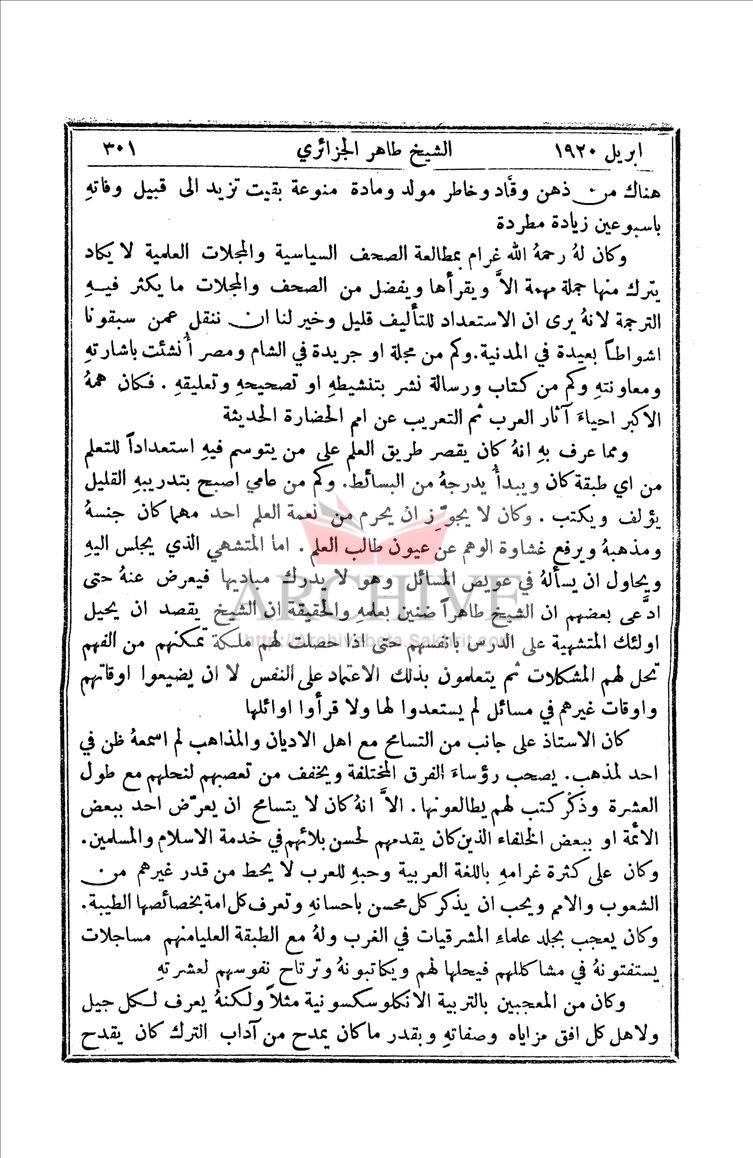 ابريل ١٩٢٠ الشيخ طاهر الجزائري ٣٠١
هناك من ذهن وقَّاد وخاطر مولد ومادة منوعة بقيت تزيد الى قبيل وفاتهِ
باسبوعين زيادة مطردة
وكان لهُ رحمهُ الله غرام بمطالعة الصحف السياسية والمجلات العلمية لا يكاد
يترك منها جملة مهمة الاَّ ويقرأها ويفضل من الصحف والمجلات ما يكثر فيهِ
الترجمة لانهُ يرى ان الاستعداد للتأليف قليل وخير لنا ان ننقل عمن سبقونا
اشواطاً بعيدة في المدنية. وكم من مجلة او جريدة في الشام ومصر أُنشئت باشارتهِ
ومعاونتهِ وكم من كتاب ورسالة نشر بتنشيطهِ او تصحيحهِ وتعليقهِ . فكان همهُ
الاكبر احياءَ آثار العرب ثم التعريب عن امم الحضارة الحديثة
ومما عرف بهِ انهُ كان يقصر طريق العلم على من يتوسم فيهِ استعداداً للتعلم
من اي طبقة كان ويبدأُ يدرجهُ من البسائط. وكم من عامي اصبح بتدريبهِ القليل
يؤلف ويكتب . وكان لا يجوِّز ان يحرم من نعمة العلم احد مهما كان جنسهُ
ومذهبهُ ويرفع غشاوة الوهم عن عيون طالب العلم . اما المتشهي الذي يجلس اليهِ
ويحاول ان يسألهُ في عويص المسائل وهو لا يدرك مباديها فيعرض عنهُ حتى
ادَّعى بعضهم ان الشيخ طاهراً ضنين بعلمهِ والحقيقة ان الشيخ يقصد ان يحيل
اولئك المتشهية على الدرس بانفسهم حتى اذا حصلت لهم ملكة تمكنهم من الفهم
تحل لهم المشكلات ثم يتعلمون بذلك الاعتماد على النفس لا ان يضيعوا اوقاتهم
واوقات غيرهم في مسائل لم يستعدوا لها ولا قرأوا اوائلها
كان الاستاذ على جانب من التسامح مع اهل الاديان والمذاهب لم اسمعهُ ظن في
احد لمذهب. يصحب رؤساءَ الفرق المختلفة ويخفف من تعصبهم لنحلهم مع طول
العشرة وذكْر كتب لهم يطالعونها . الاَّ انهُ كان لا يتسامح ان يعرّض احد ببعض
الائمة او ببعض الخلفاء الذين كان يقدمهم لحسن بلائهم في خدمة الاسلام والمسلمين.
وكان على كثرة غرامهِ باللغة العربية وحبهِ للعرب لا يحط من قدر غيرهم من
الشعوب والامم ويحب ان يذكر كل محسن باحسانهِ وتعرف كل امة بخصائصها الطيبة.
وكان يعجب بجلد علماءِ المشرقيات في الغرب ولهُ مع الطبقة العليا منهم مساجلات
يستفتونهُ في مشاكلهم فيحلها لهم ويكاتبونهُ وترتاح نفوسهم لعشرتهِ
وكان من المعجبين بالتربية الانكلوسكسونية مثلاً ولكنهُ يعرف لكل جيل
ولاهل كل افق مزاياه وصفاتهِ وبقدر ما كان يمدح من آداب الترك كان يقدح
ARCHIVE
http://Archivebeta.Sakhrit.com